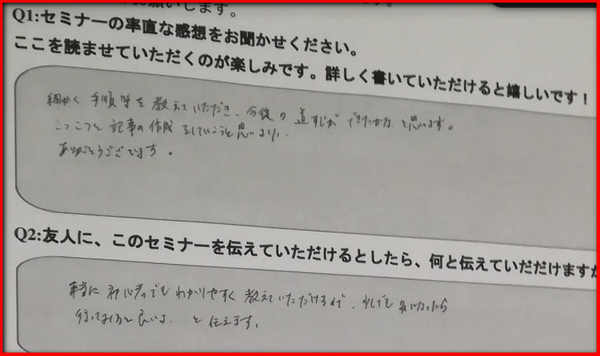 願いします。
Q1:セミナーの率直な感想をお聞かせください。
ここを読ませていただくのが楽しみです。詳しく書いていただけると嬉しいです!
細かく手順等を教えていただき、今後の道すじができたかなと思います。
こつこつと記事の作成をしていこうと思いました。
ありがとうございます。
Q2:友人に、このセミナーを伝えていただけるとしたら、何と伝えていだだけますか
本当に初心者でもわかりやすく教えていただけるので、少しでも気になったら
行ってみると良いよ、と伝えます。